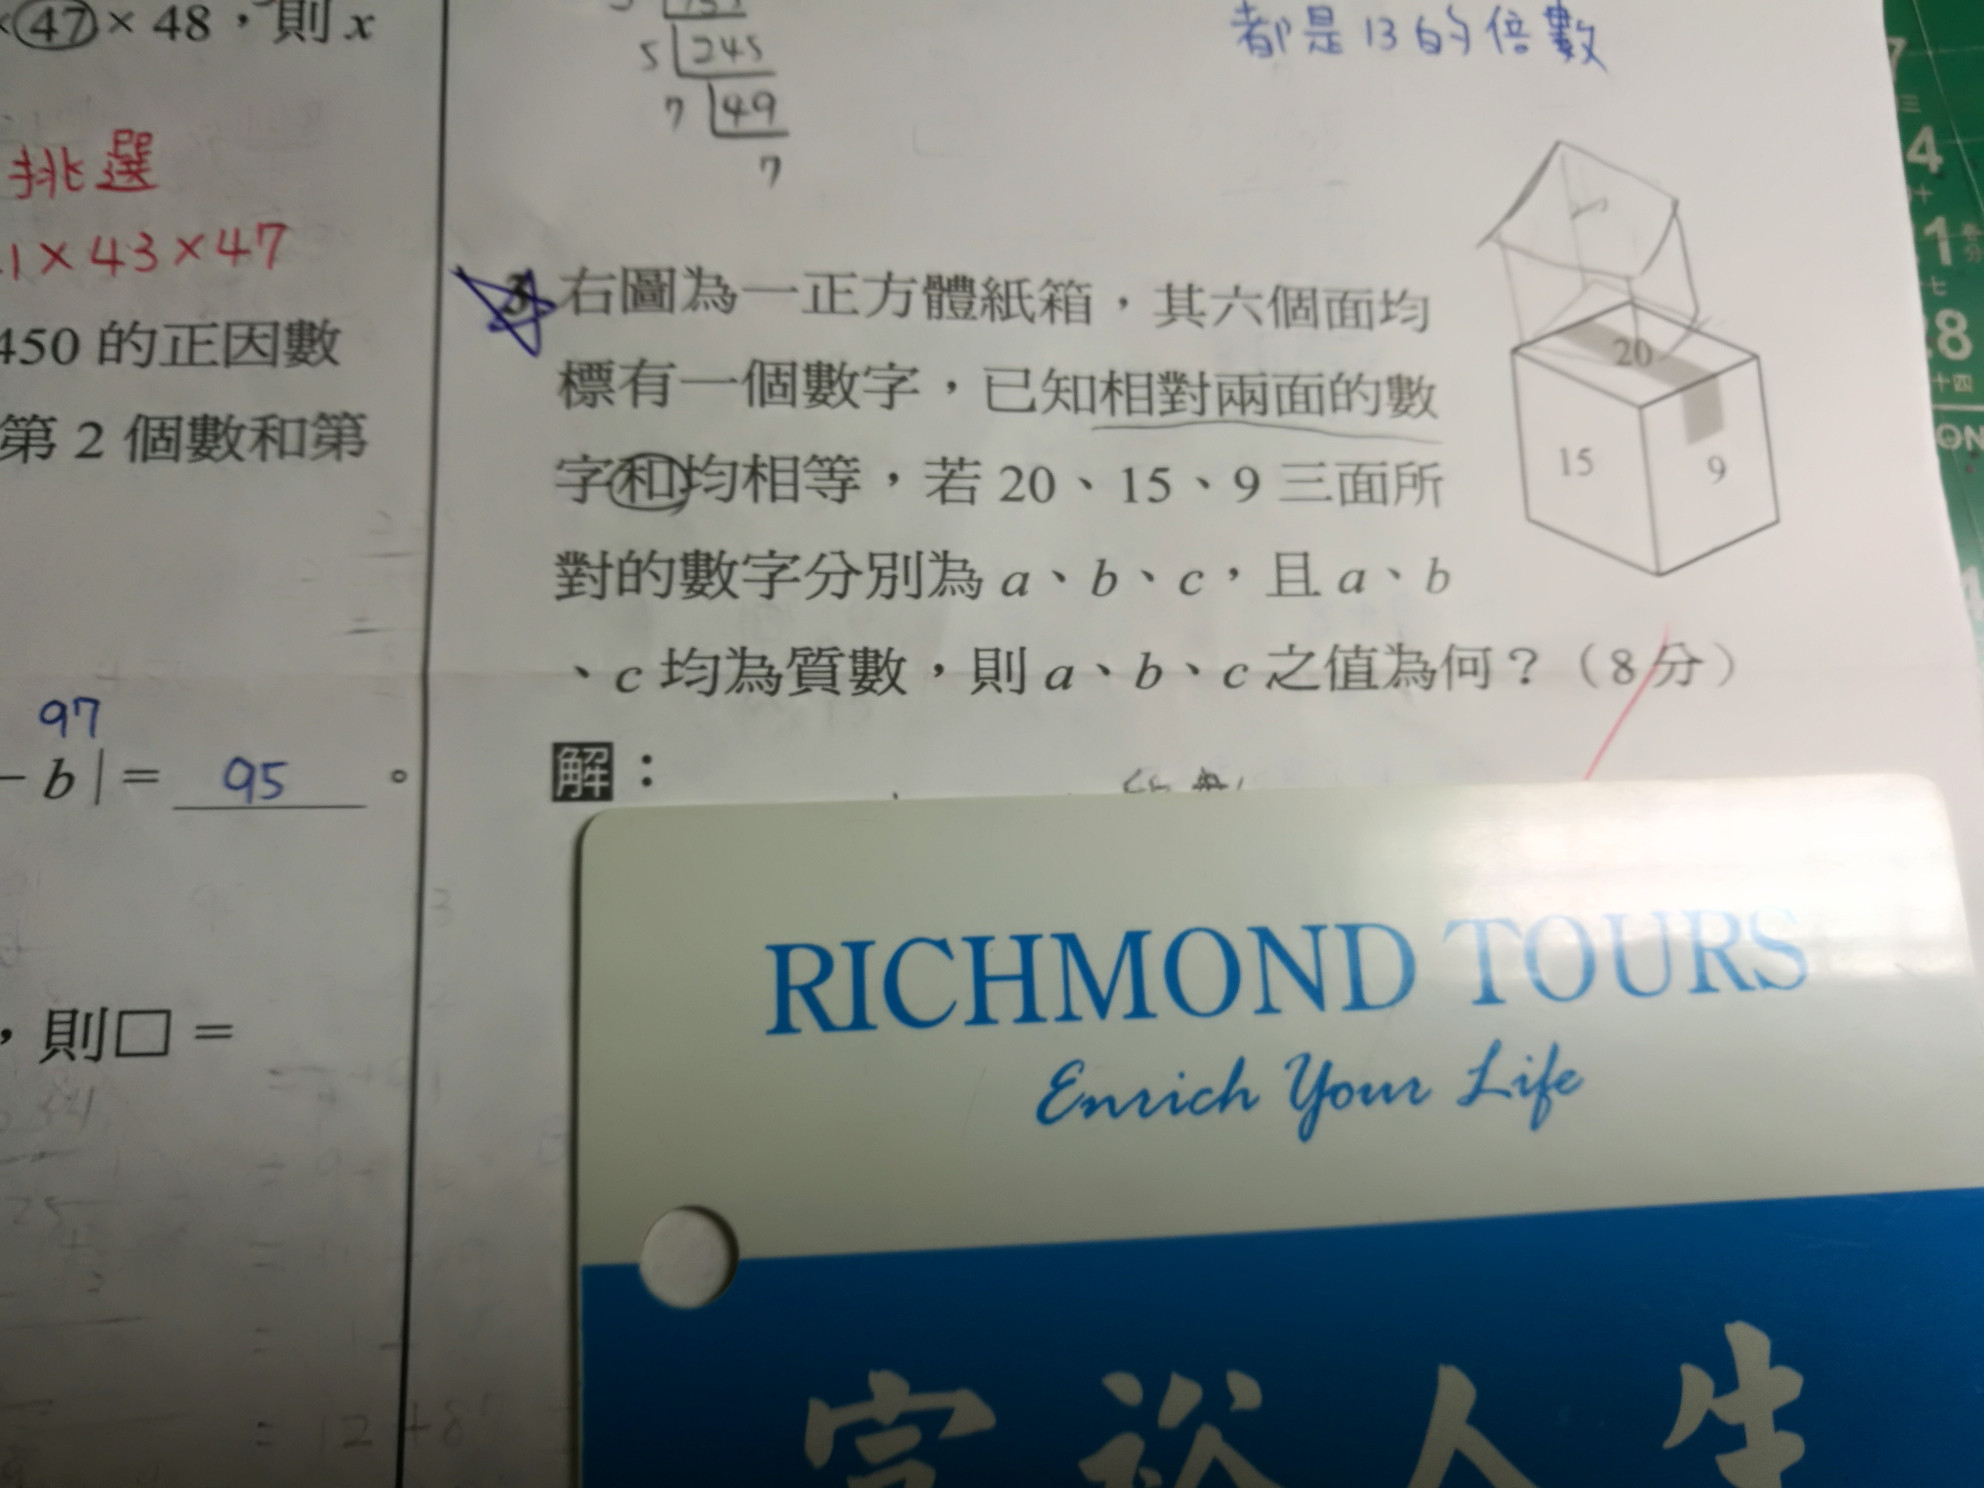 47 × 48，則 x
挑選
1×43×47
450 的正因數
第 2 個數和第
97
− b| = 95 。
，則□ =
5 245
7 49
7
都是13的倍數
3 右圖為一正方體紙箱，其六個面均
標有一個數字，已知相對兩面的數
字和均相等，若 20、15、9 三面所
對的數字分別為 a、b、c，且 a、b
、c 均為質數，則 a、b、c 之值為何？（8 分）
20
15
9
解：
RICHMOND TOURS
Enrich Your Life
裕人生
4
1
8
十四